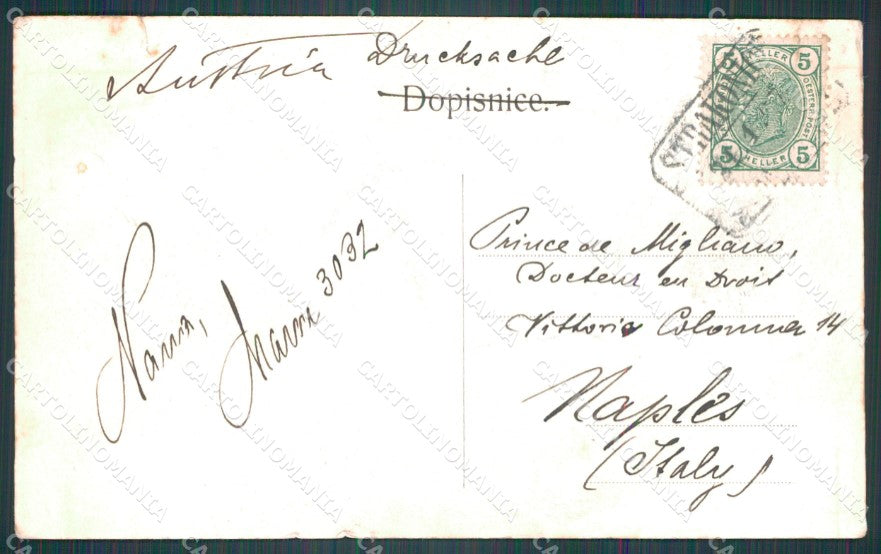 Austria
Drucksache
Dopisnice.
5 HELLER 5
OESTERR. POST
5 HELLER 5
STRAKONI
Prince de Migliano,
Docteur en Droit
Vittoria Colonna 14
Naples
(Italy)
3032
CARTOLINOMANIA